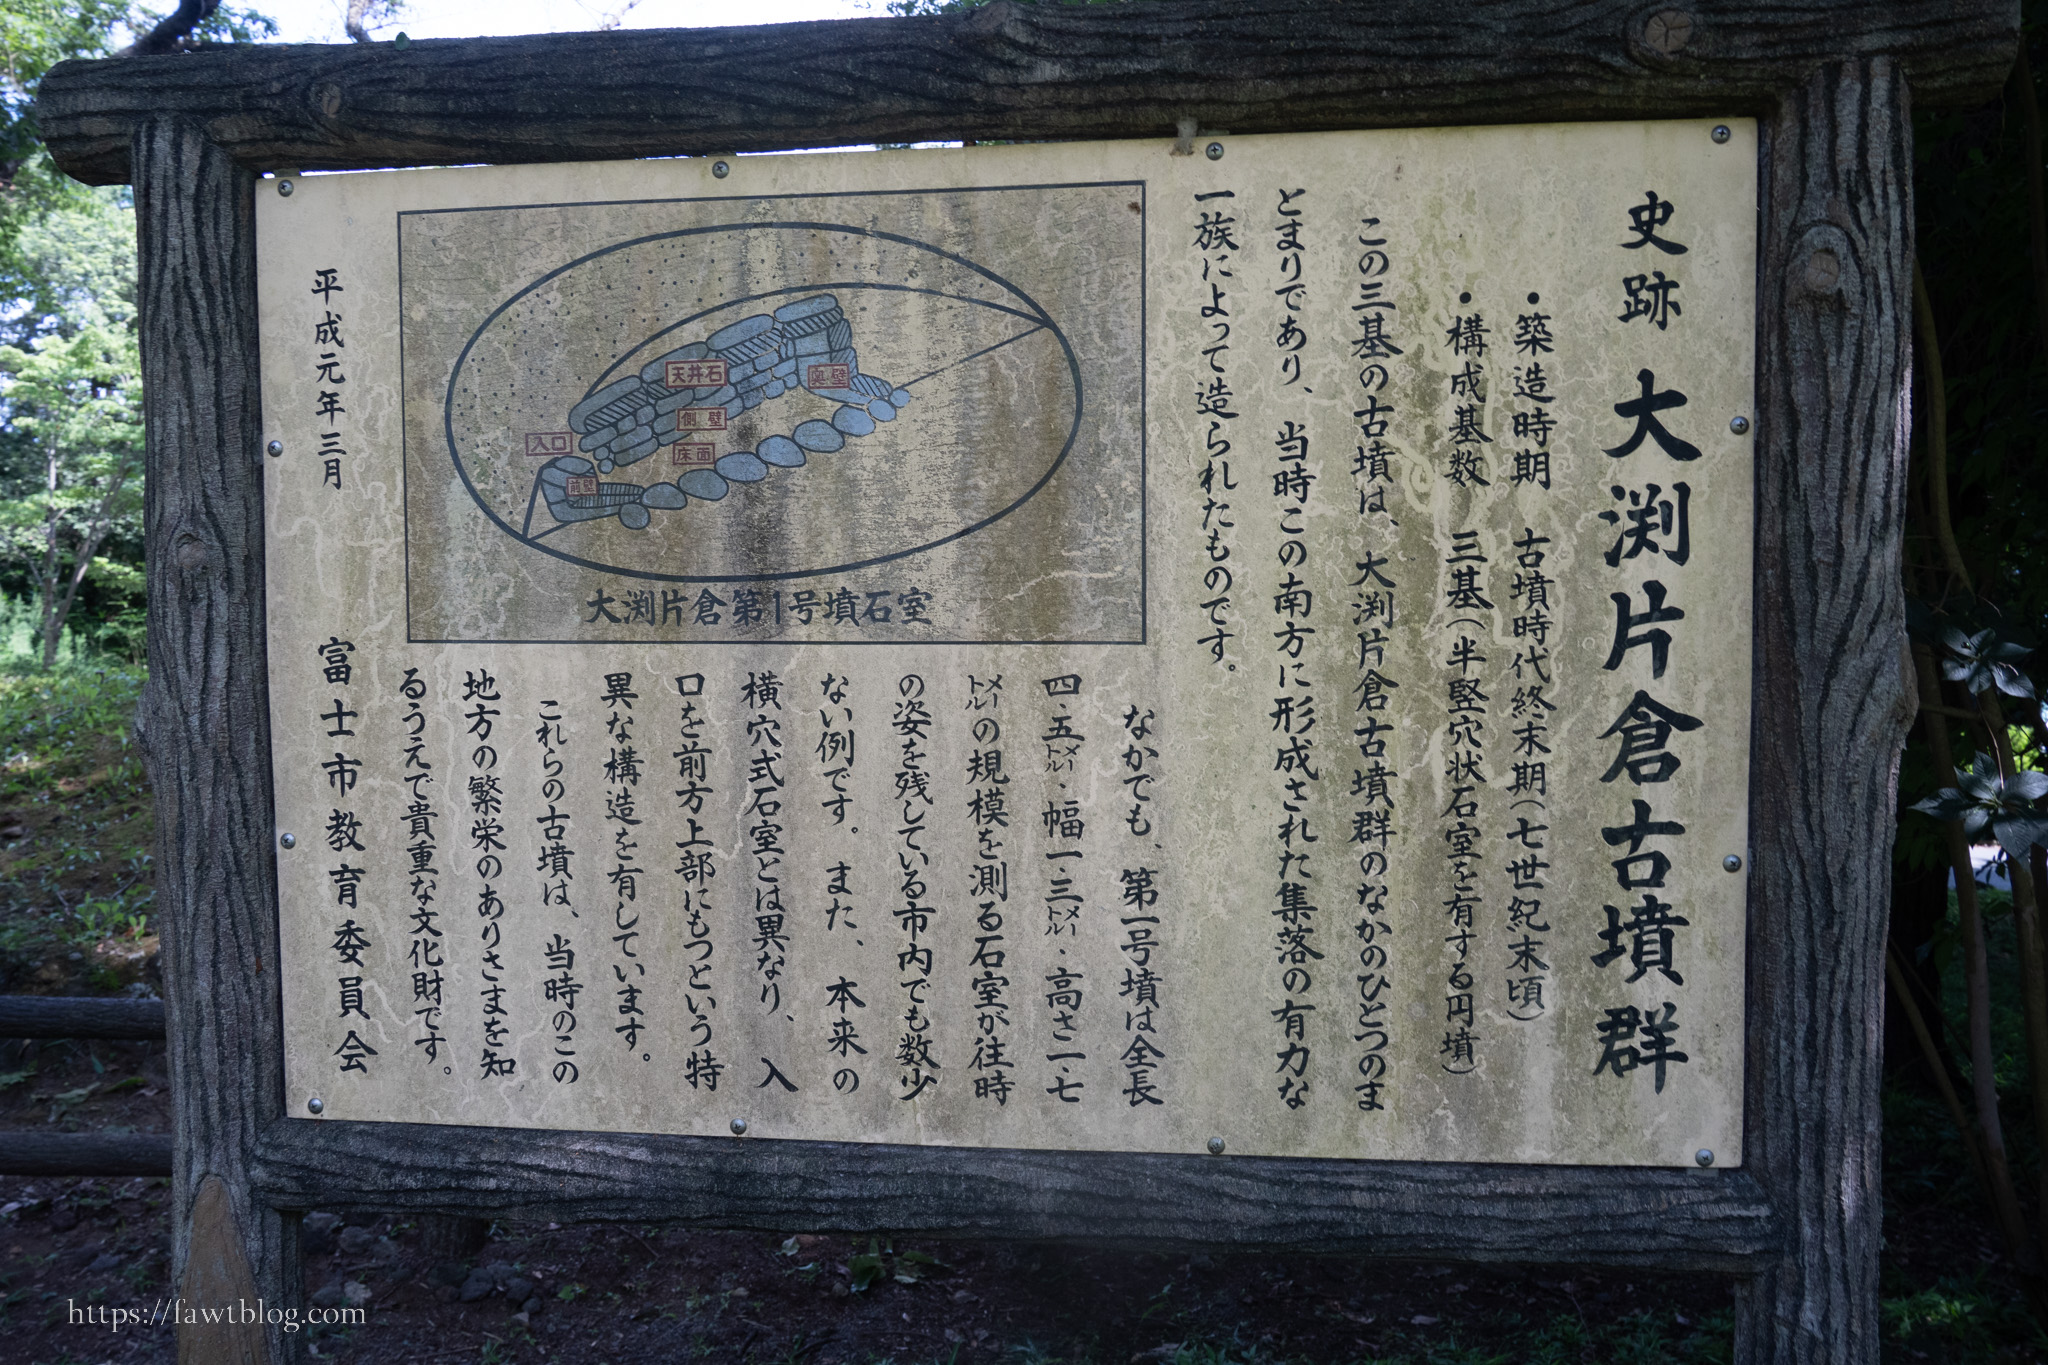 史跡 大渕片倉古墳群
・築造時期 古墳時代終末期(七世紀末頃)
・構成基数 三基(半竪穴状石室を有する円墳)
この三基の古墳は、大渕片倉古墳群のなかのひとつのま
とまりであり、当時この南方に形成された集落の有力な
一族によって造られたものです。
なかでも、第一号墳は全長
四・五メートル・幅一・三メートル・高さ一・七
メートルの規模を測る石室が往時
の姿を残している市内でも数少
ない例です。また、本来の
横穴式石室とは異なり、入
口を前方上部にもつという特
異な構造を有しています。
これらの古墳は、当時のこの
地方の繁栄のありさまを知
るうえで貴重な文化財です。
平成元年三月
富士市教育委員会
天井石
奥壁
側壁
入口
床面
前壁
大渕片倉第1号墳石室
https://fawtblog.com